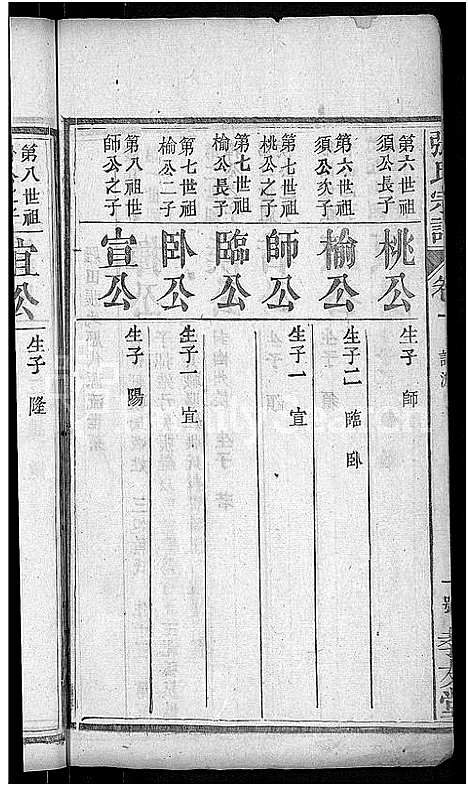 張氏宗譜
卷一
第六世祖
須公長子
桃公
生子 師
第六世祖
須公次子
榆公
生子二 臨 卧
第七世祖
桃公之子
師公
生子一 宣
第七世祖
榆公長子
臨公
第七世祖
榆公二子
卧公
生子一 宜
第八祖世
師公之子
宣公
生子 陽
第八世祖
宜公
生子 隆